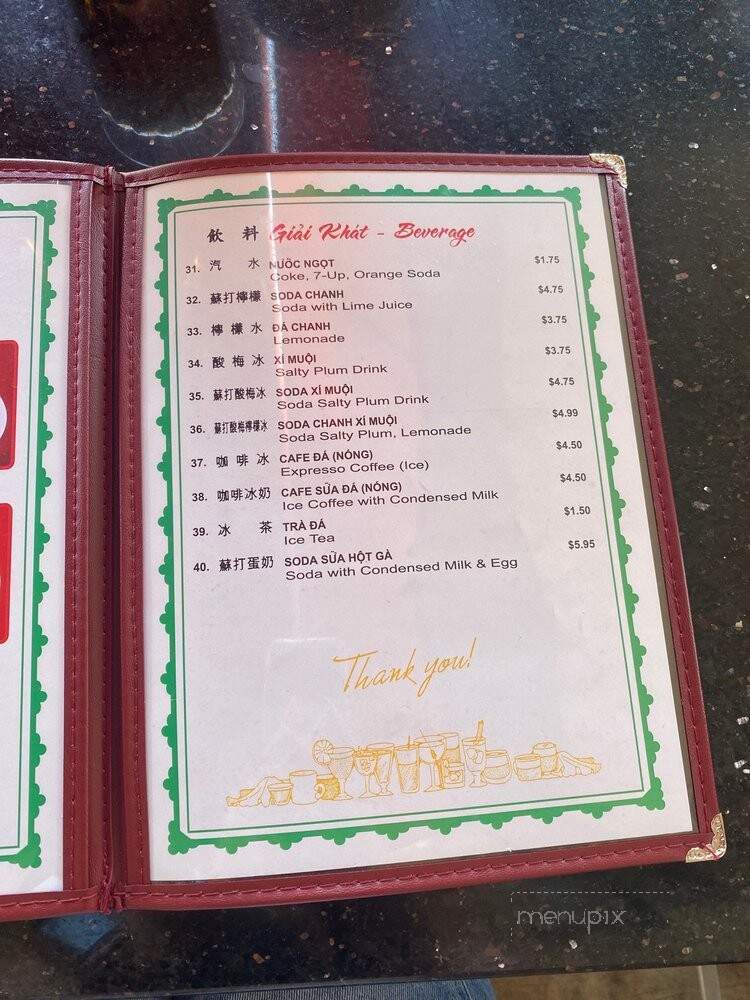 飲 料 Giải Khát - Beverage
31. 汽 水 NƯỚC NGỌT $1.75
Coke, 7-Up, Orange Soda
32. 蘇打檸檬 SODA CHANH $4.75
Soda with Lime Juice
33. 檸 檬 水 ĐÁ CHANH $3.75
Lemonade
34. 酸 梅 冰 XÍ MUỘI $3.75
Salty Plum Drink
35. 蘇打酸梅冰 SODA XÍ MUỘI $4.75
Soda Salty Plum Drink
36. 蘇打酸梅檸檬冰 SODA CHANH XÍ MUỘI $4.99
Soda Salty Plum, Lemonade
37. 咖 啡 冰 CAFE ĐÁ (NÓNG) $4.50
Expresso Coffee (Ice)
38. 咖啡冰奶 CAFE SỮA ĐÁ (NÓNG) $4.50
Ice Coffee with Condensed Milk
39. 冰 茶 TRÀ ĐÁ $1.50
Ice Tea
40. 蘇打蛋奶 SODA SỮA HỘT GÀ $5.95
Soda with Condensed Milk & Egg
Thank you!
menupix